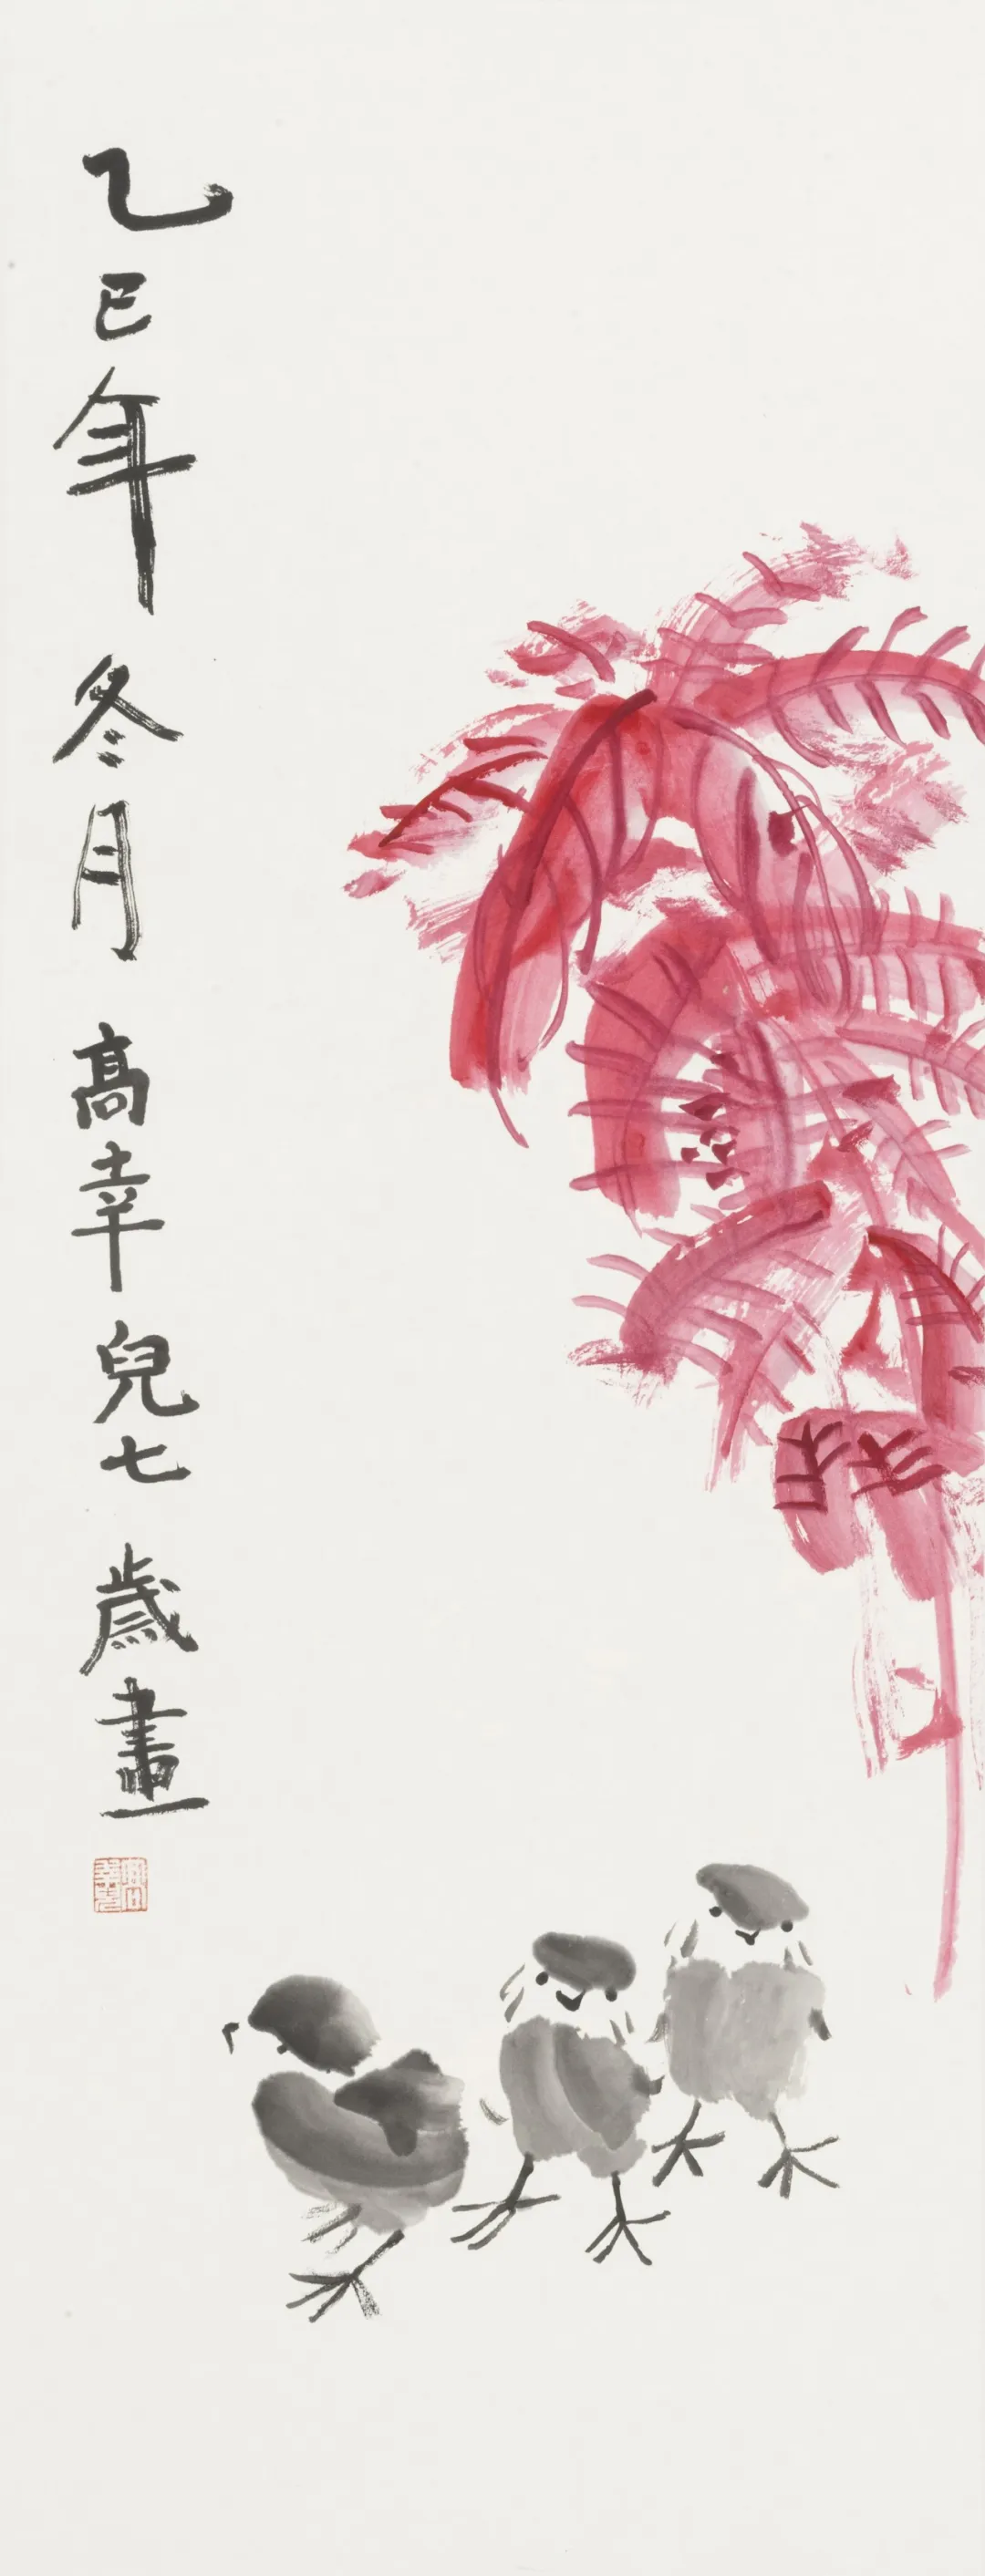 乙巳年冬月高幸兒七歲畫